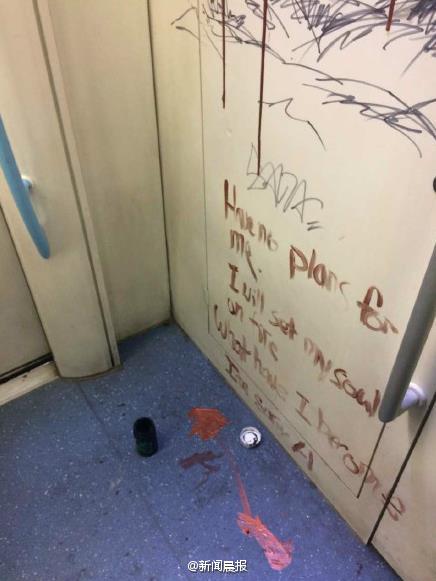 Have no plans for
me.
I will set my soul
on fire
What have I become
I'm sorry
@新闻晨报